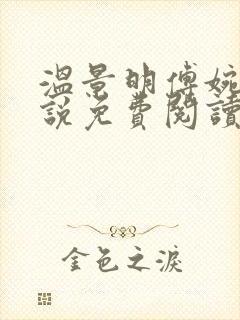 溫景明傅婉
說免費閱讀
金色之淚